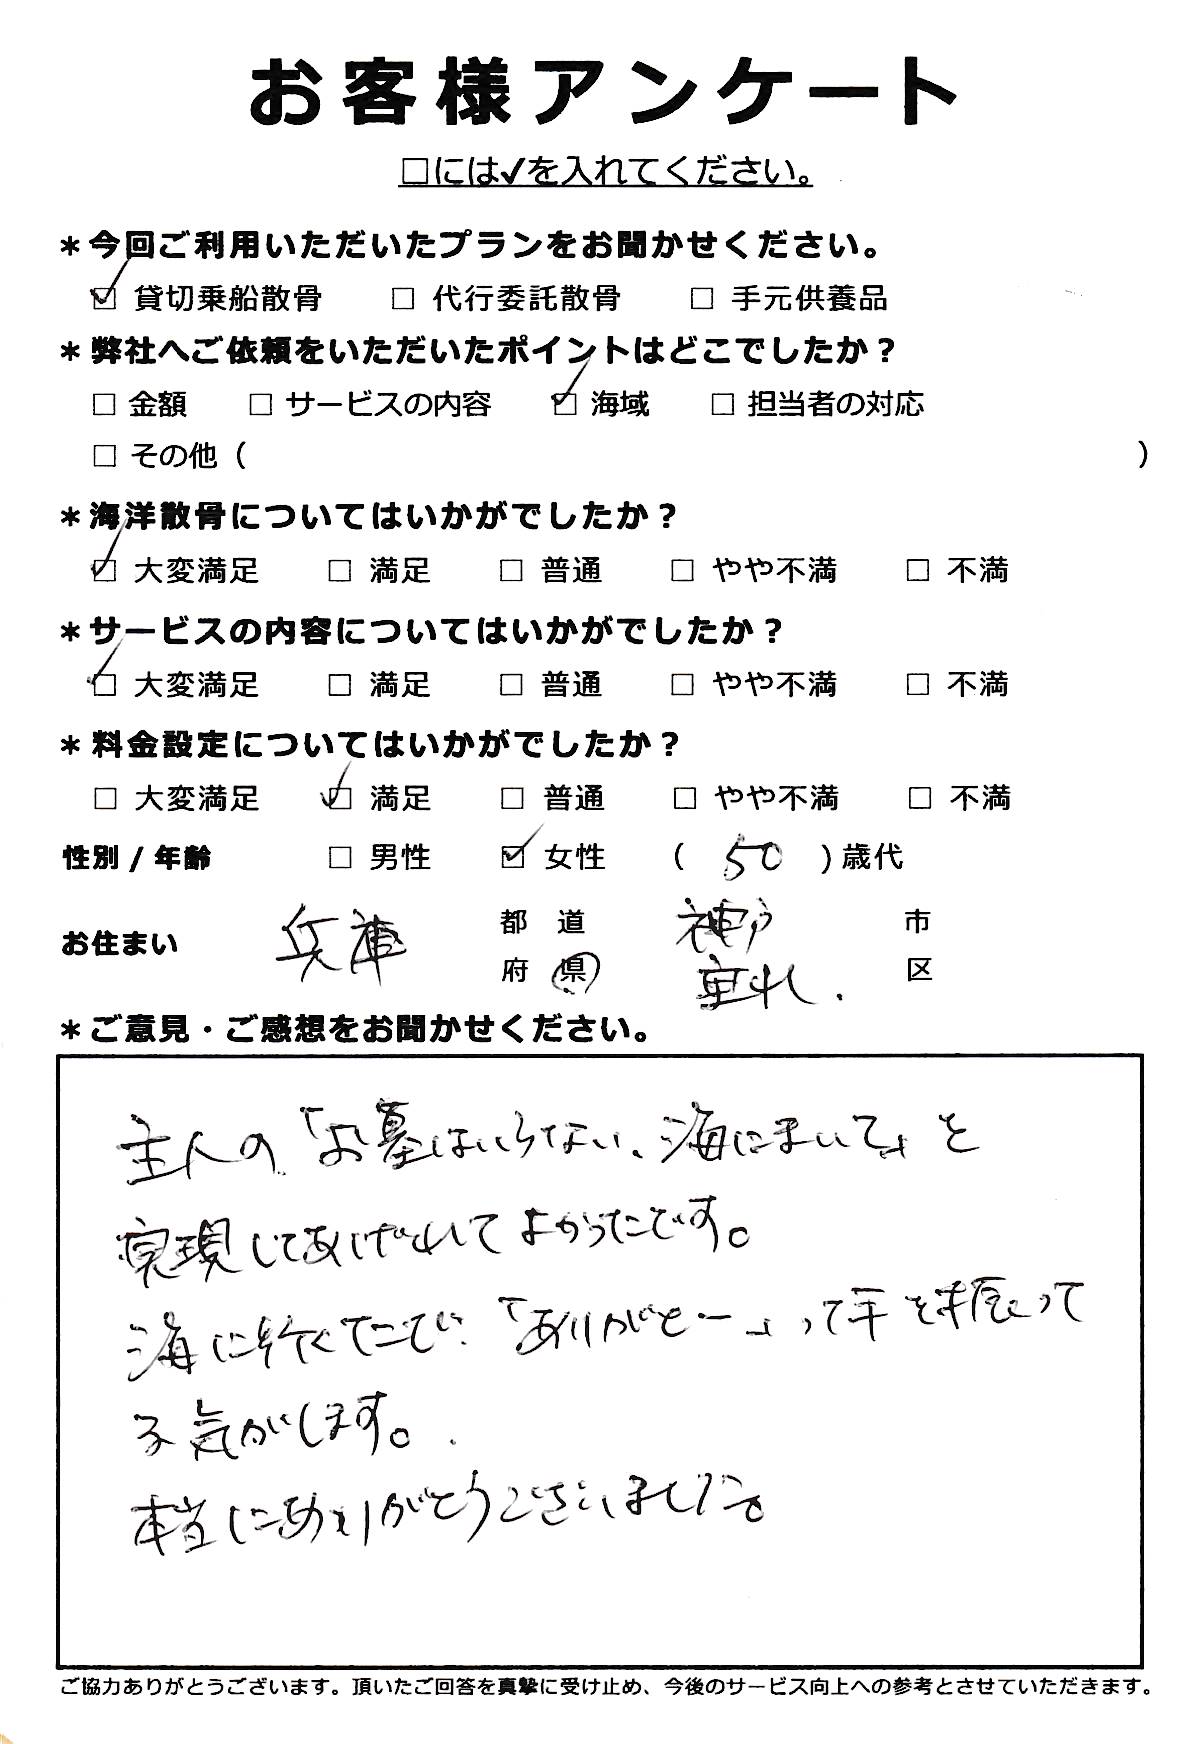 お客様アンケート
□には✓を入れてください。
＊今回ご利用いただいたプランをお聞かせください。
☑ 貸切乗船散骨 □ 代行委託散骨 □ 手元供養品
＊弊社へご依頼をいただいたポイントはどこでしたか？
□ 金額 □ サービスの内容 ☑ 海域 □ 担当者の対応
□ その他（ ）
＊海洋散骨についてはいかがでしたか？
☑ 大変満足 □ 満足 □ 普通 □ やや不満 □ 不満
＊サービスの内容についてはいかがでしたか？
☑ 大変満足 □ 満足 □ 普通 □ やや不満 □ 不満
＊料金設定についてはいかがでしたか？
□ 大変満足 ☑ 満足 □ 普通 □ やや不満 □ 不満
性別 / 年齢 □ 男性 ☑ 女性 （ 50 ）歳代
お住まい 兵庫 都 道 府 県 神戸 市 垂水 区
＊ご意見・ご感想をお聞かせください。
主人の「お墓はいらない、海にまいて」と
実現してあげれてよかったです。
海に行くてこで「ありがとー」って手を振って
る気がします。
本当にありがとうございました。
ご協力ありがとうございます。頂いたご回答を真摯に受け止め、今後のサービス向上への参考とさせていただきます。